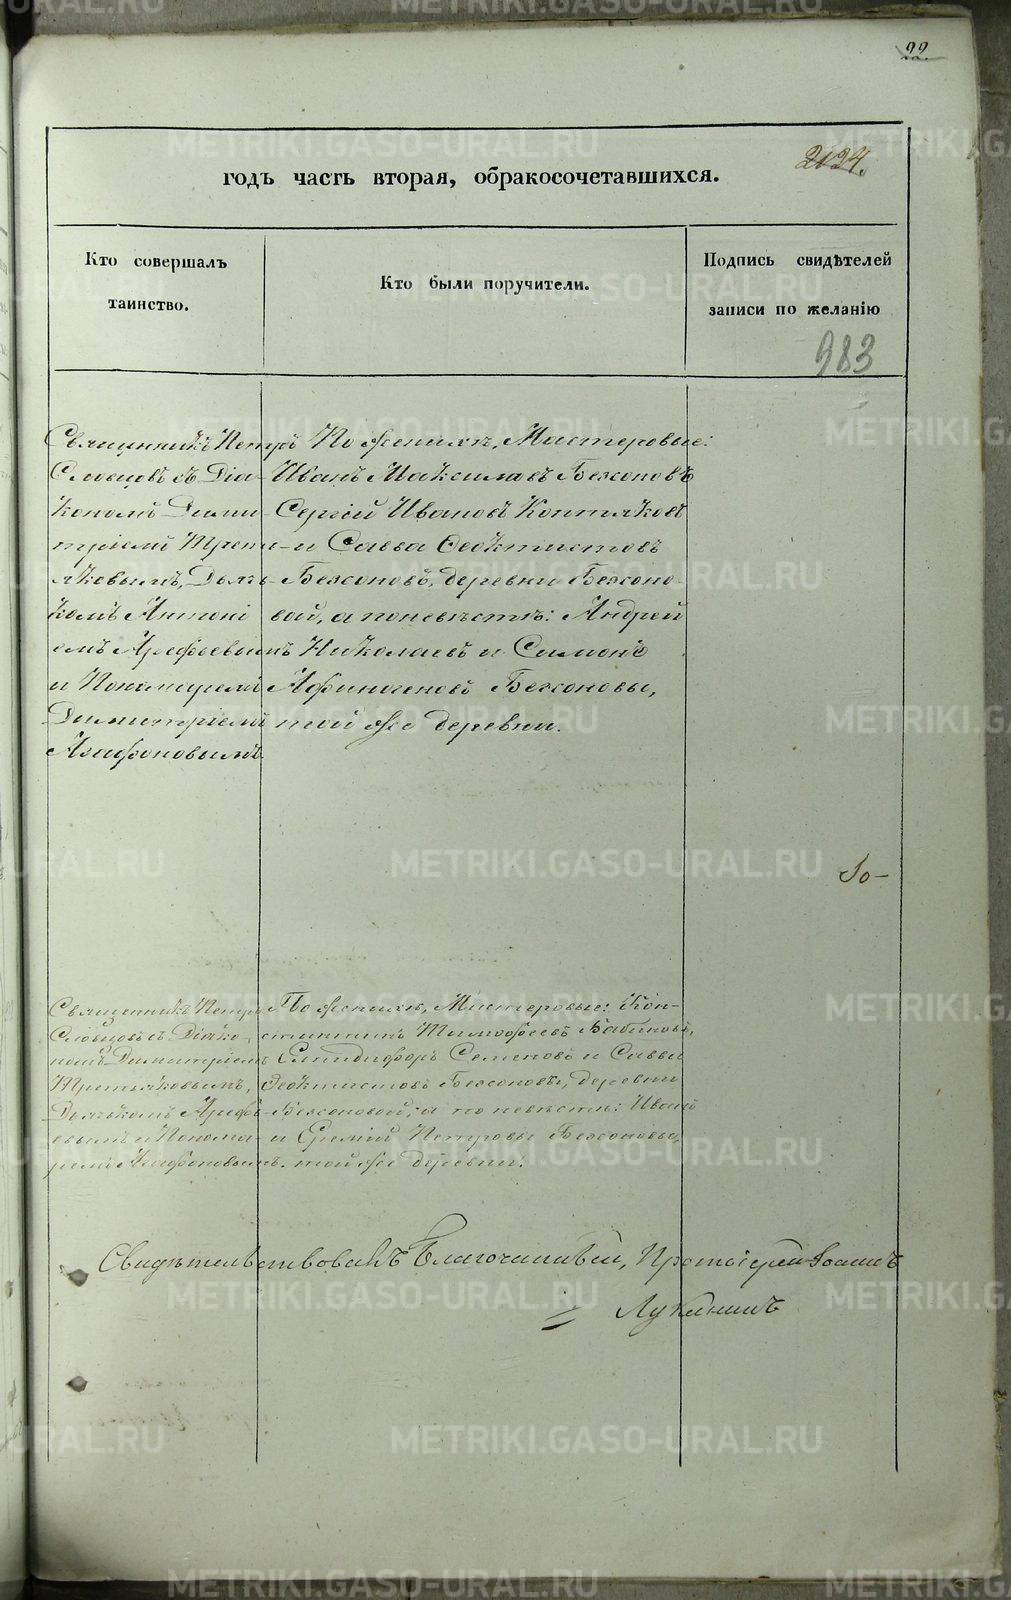 22.
2024.
годъ часть вторая, обракосочетавшихся.
Кто совершалъ
таинство.
Кто были поручители.
Подпись свидѣтелей
записи по желанію
983
Священникъ Петръ
Словцовъ съ Діа-
кономъ Дими-
тріемъ Третья-
ковымъ, Дьяч-
комъ
Арефьевымъ
и Пономаремъ
Димитріемъ
Агафоновымъ.
По женихѣ, Мастеровые:
Иванъ Максимовъ Безсоновъ
Сергій Ивановъ Коптяковъ
и Савва Феоктистовъ
Безсоновъ, деревни Безсоно-
вой, а поневѣстѣ: Андрей
Николаевъ и Симонъ
Афиногеновъ Безсоновы,
той же деревни.
Священникъ Петръ
Словцовъ съ Діако-
номъ Димитріемъ
Третьяковымъ,
Дьячкомъ Арефь-
евымъ и Понома-
ремъ Агафоновымъ.
По женихѣ, Мастеровые: Кон-
стантинъ Тимофеевъ Бабиновъ,
Спиридонъ Семеновъ и Савва
Феоктистовъ Безсоновы, деревни
Безсоновой, а по невѣстѣ: Иванъ
и Еремій Петровы Безсоновы,
той же деревни.
Свидѣтельствовалъ Благочинный, Протоіерей Іоаннъ
Лукинъ
METRIKI.GASO-URAL.RU